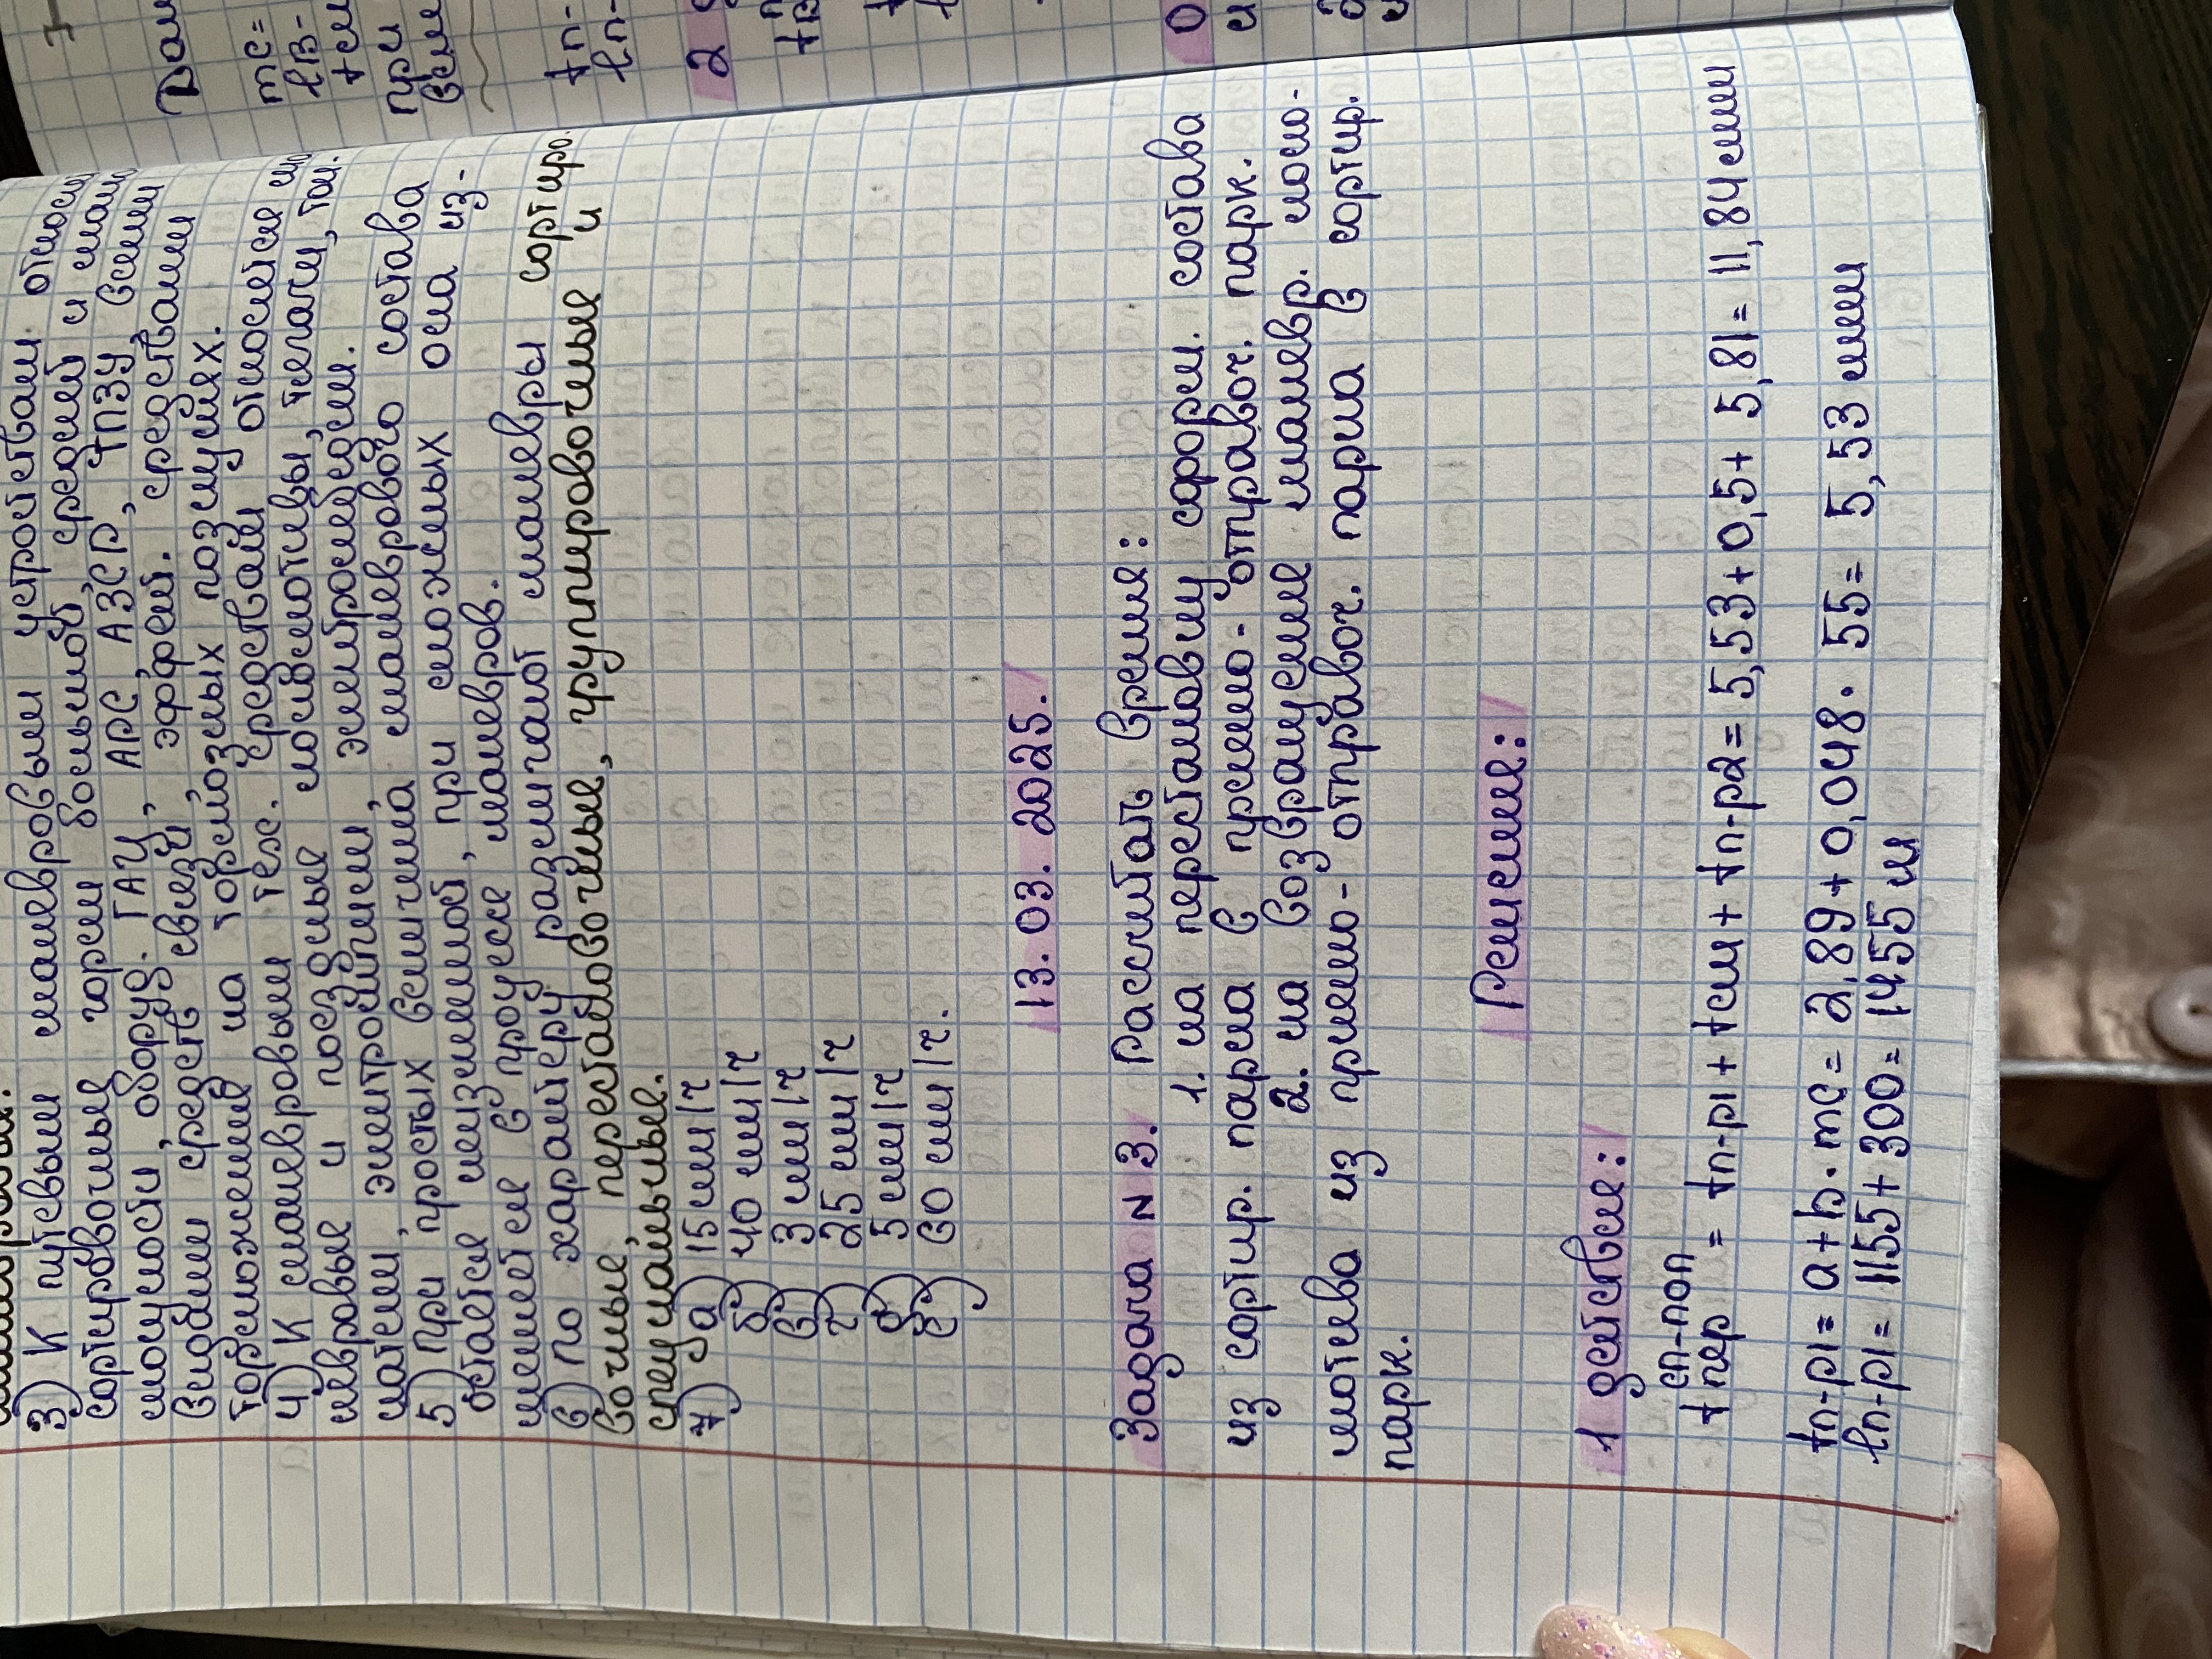 3) К путевым маневровым устройствам относи
сортировочные горки большой, средней и мал
мощности, оборуд. ГАЦ, АРС, АЗСР, ТПЗУ, всеми
видами средств связи, эффект. средствами
торможения на тормозных позициях.
4) К маневровым тех. средствам относятся ма
невровые и поездные локомотивы, тягачи, тол.
катели, электротягачи, электротележ.
5) При простых величина маневрового состава
остается неизменной, при сложных она из-
меняется в процессе маневров.
6) По характеру различают маневры сортиро.
вочные, перестановочные, группировочные и
специальные.
7) а) 15 км/ч
б) 40 км/ч
в) 3 км/ч
г) 25 км/ч
д) 5 км/ч
е) 60 км/ч.
13. 03. 2025.
Задача N 3. Рассчитать время:
1. на перестановку сформ. состава
из сортир. парка в приемо- отправоч. парк.
2. на возвращение маневр. локо-
мотива из приемо- отправоч. парка в сортир.
парк.
Решение:
1 действие:
сп-поп
tпер = tп-р1 + tсм + tп-р2 = 5,53 + 0,5 + 5,81 = 11,84 мин
tп-р1 = a + b · mс = 2,89 + 0,048 · 55 = 5,53 мин
lп-р1 = 1155 + 300 = 1455 м
Дан
mс=
lв-
tсм
при
Всем
tп-
lп-
2